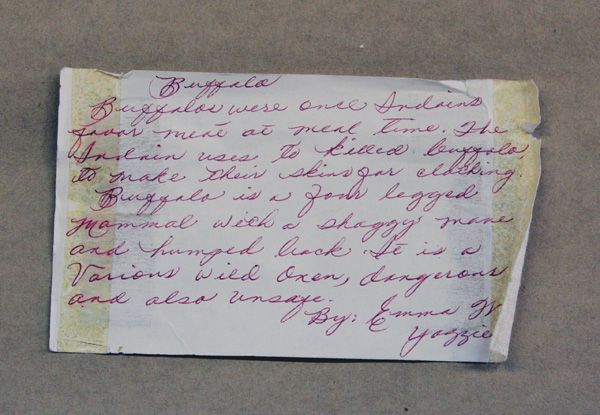 Buffalo
Buffalos were once Indains
favor meat at meal time. The
Indain uses to killed buffalo,
to make their skins for clothing.
Buffalo is a four legged
mammal with a shaggy mane
and humped back. It is a
Various wild Oxen, dangerous
and also unsafe.
By: Emma W
Yazzie